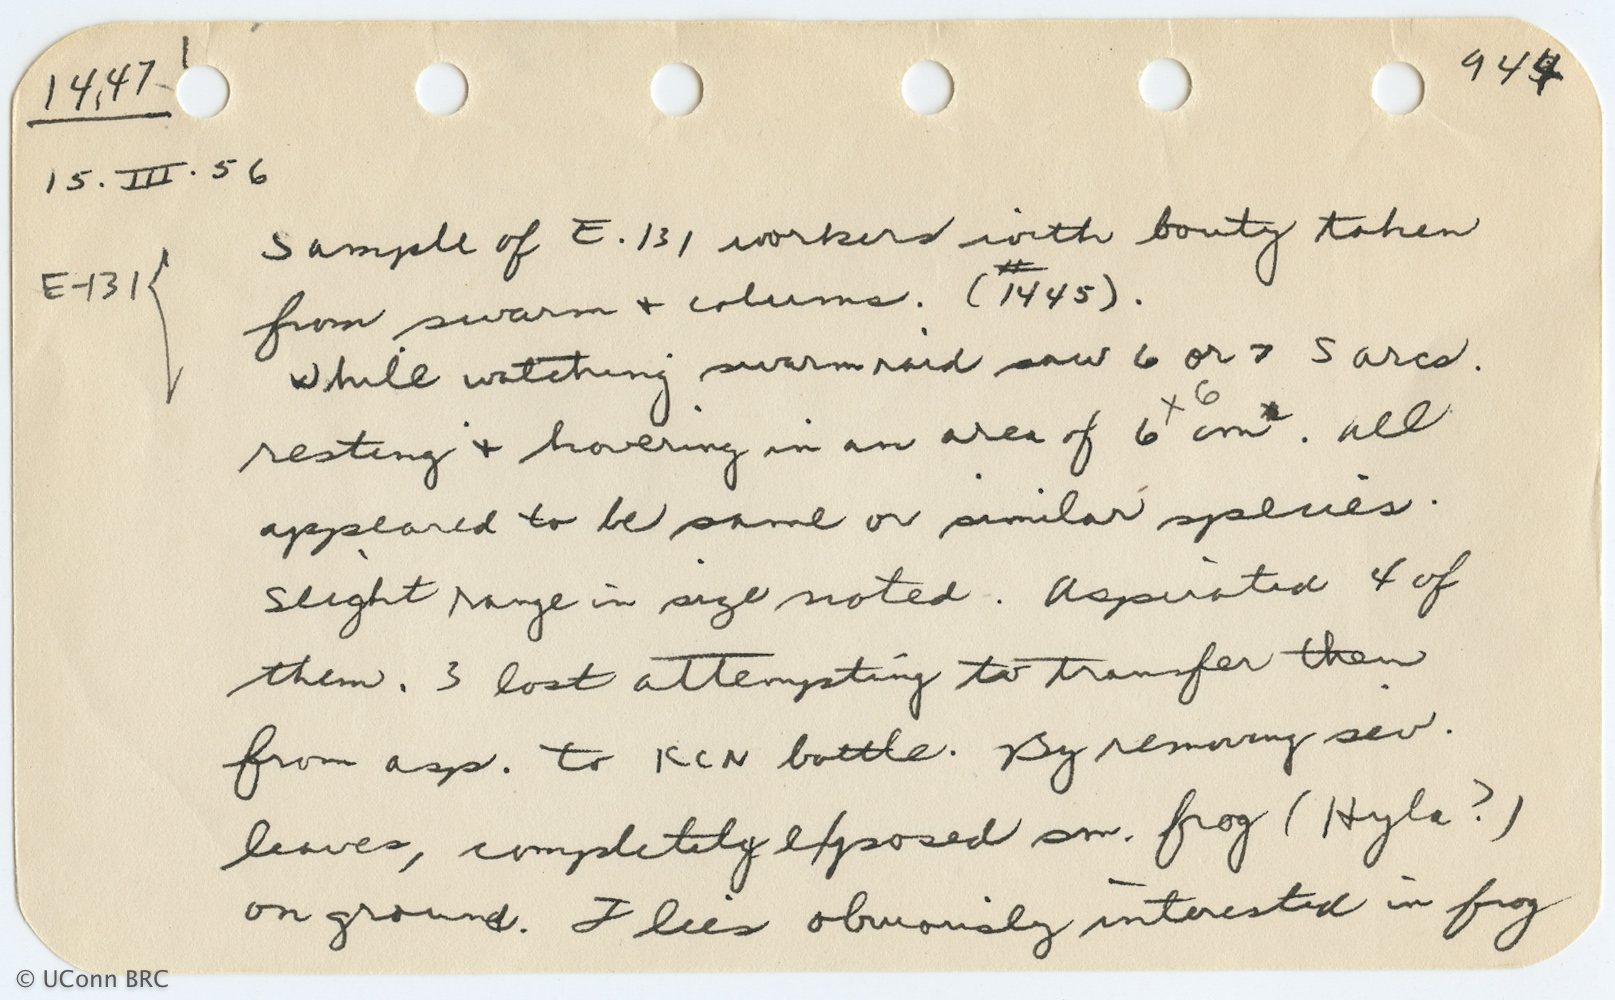 1447
944
15.III.56
E-131
Sample of E.131 workers with booty taken
from swarm + columns. (#1445).
While watching swarm raid saw 6 or 7 Sarcs.
resting + hovering in an area of 6 x 6 cm. All
appeared to be same or similar species.
Slight range in size noted. Aspirated 4 of
them. 3 lost attempting to transfer them
from asp. to KCN bottle. By removing sev.
leaves, completely exposed sm. frog (Hyla?)
on ground. Flies obviously interested in frog
© UConn BRC